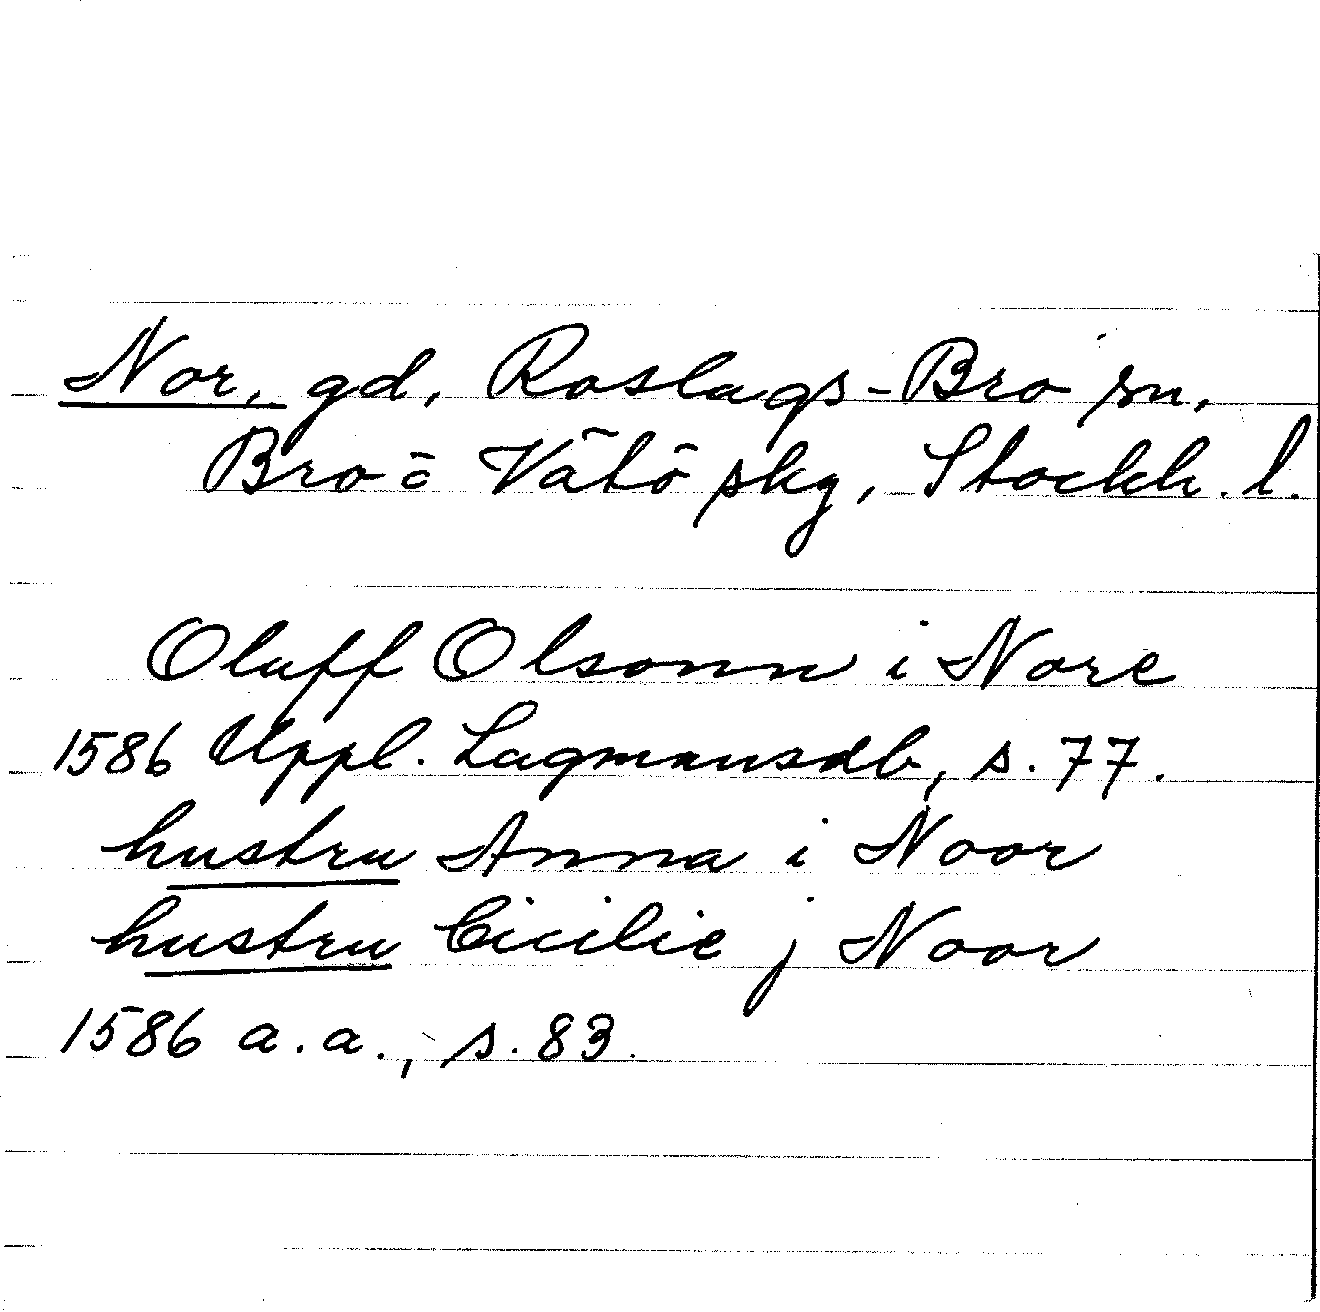 Nor, gd, Roslags-Bro sn,
Bro o Vätö skg, Stockh. l.
Oluff Olsonn i Nore
1586 Uppl. Lagmansdb, s. 77.
hustru Anna i Noor
hustru Cicilie j Noor
1586 a.a., s. 83.